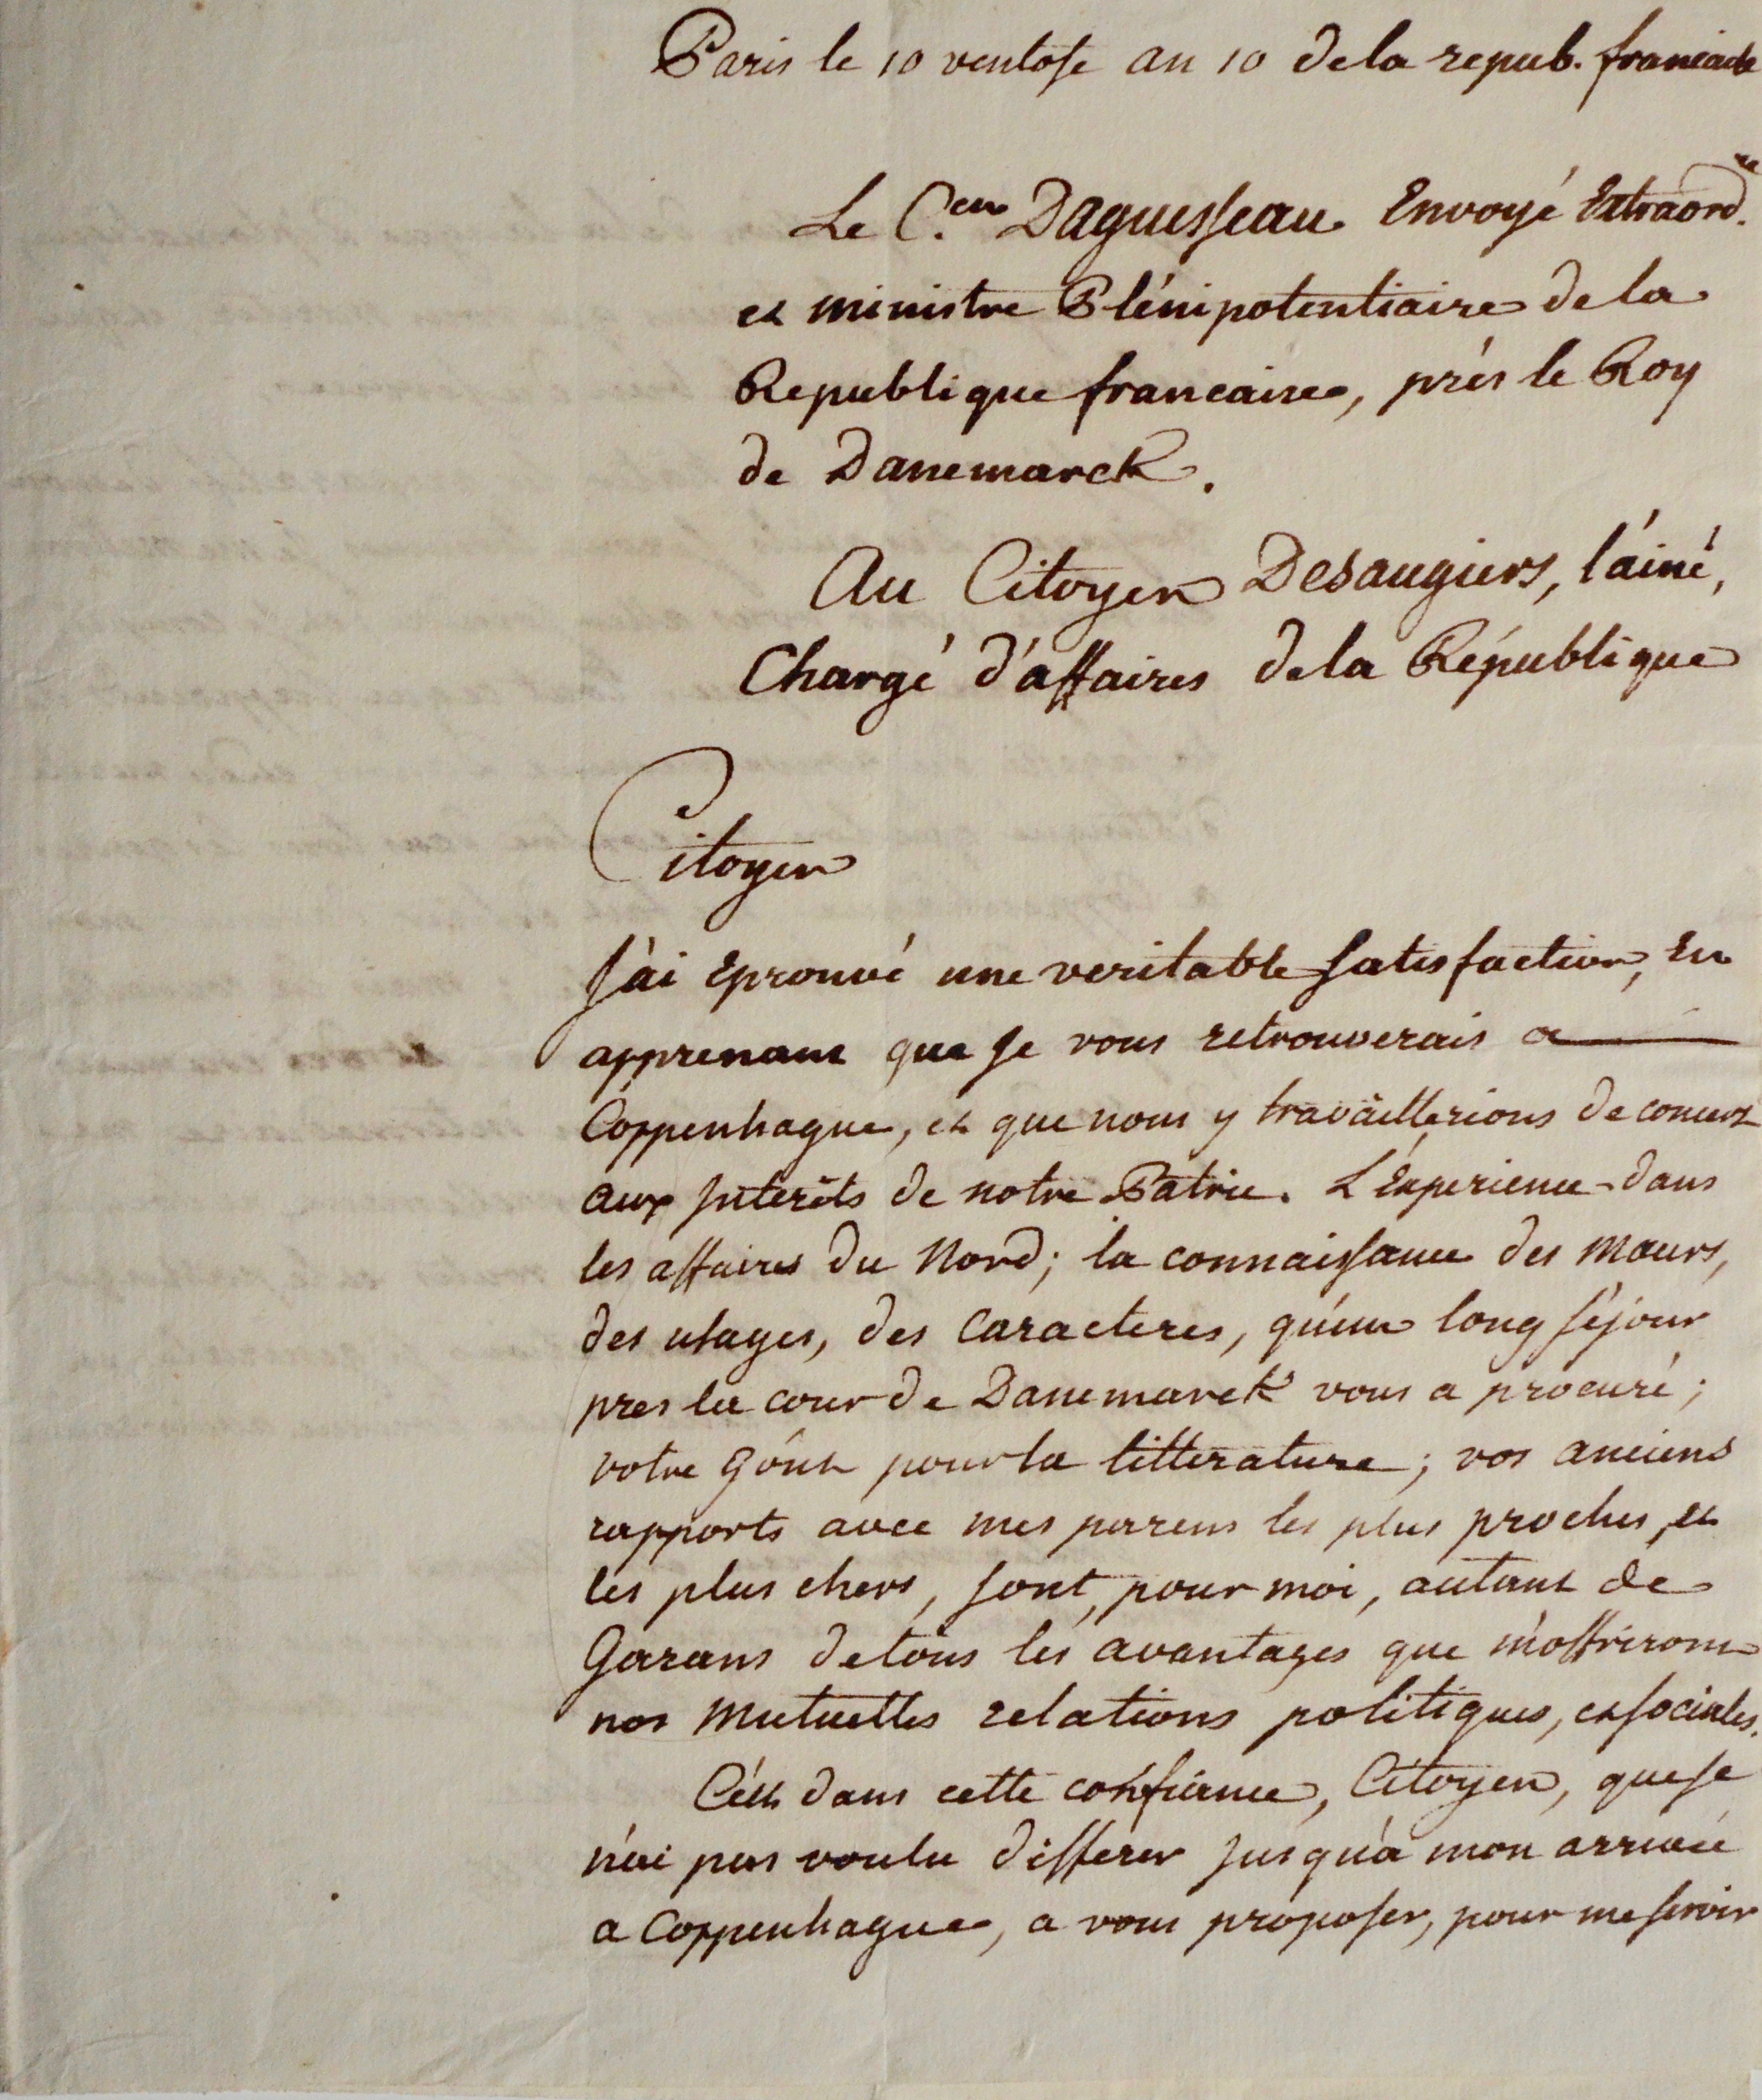 Paris le 10 ventose an 10 de la repub. francaise
Le C.en Daguesseau Envoyé Extraord.re
et ministre Plénipotentiaire de la
Republique francaise, près le Roy
de Danemarck.
Au Citoyen Desaugiers, l'ainé,
Chargé d'affaires de la République
Citoyen
J'ai eprouvé une veritable satisfaction, en
apprenant que je vous retrouverais a
Coppenhague, et que nous y travaillerions de concert
aux Interêts de notre Patrie. L'Experience dans
les affaires du Nord; la connaissance des mœurs,
des usages, des caracteres, qu'un long séjour
pres la cour de Danemarck vous a procuré;
votre goût pour la litterature; vos anciens
rapports avec mes parens les plus proches, et
les plus chers, sont, pour moi, autant de
Garans de tous les avantages que m'offriront
nos mutuelles relations politiques, et sociales.
C'est dans cette confiance, Citoyen, que je
n'ai pas voulu differer jusqu'à mon arrivée
a Coppenhague, a vous proposer, pour me servir